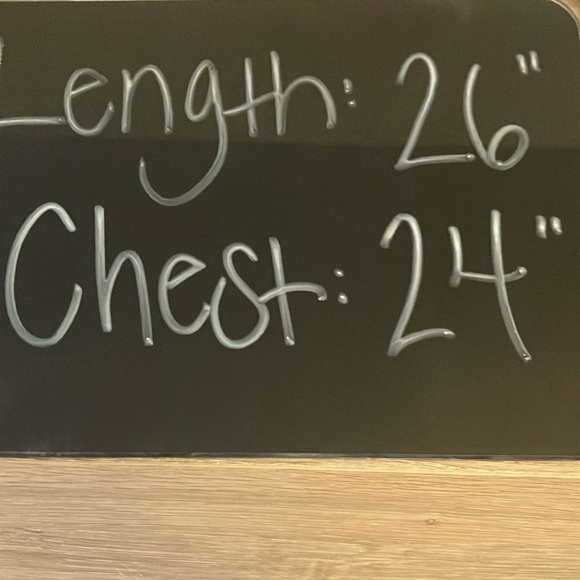 Length: 26"
Chest: 24"